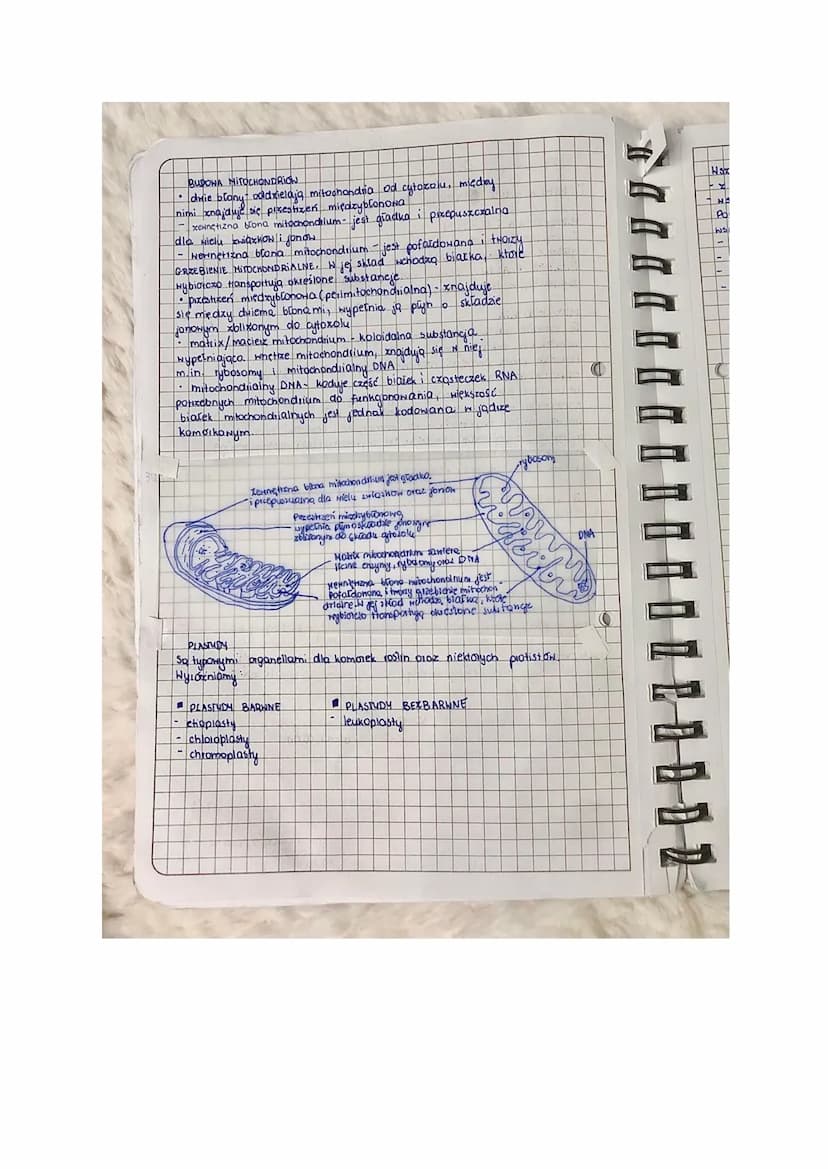 BUDOWA MITOCHONDRIÓW
• dwie błony - oddzielają mitochondria od cytozolu, między
nimi znajduje się przestrzeń międzybłonowa
- zewnętrzna błona mitochondrium - jest gładka i przepuszczalna
dla wielu związków i jonów
- wewnętrzna błona mitochondrium - jest pofałdowana i tworzy
GRZEBIENIE MITOCHONDRIALNE. W jej skład wchodzą białka, które
wybiórczo transportują określone substancje
• przestrzeń międzybłonowa (perimitochondrialna) - znajduje
się między dwiema błonami, wypełnia ją płyn o składzie
jonowym zbliżonym do cytozolu
• matrix/macierz mitochondrium - koloidalna substancja
wypełniająca wnętrze mitochondrium, znajdują się w niej
m.in. rybosomy i mitochondrialny DNA
• mitochondrialny DNA - koduje część białek i cząsteczek RNA
potrzebnych mitochondrium do funkcjonowania, większość
białek mitochondrialnych jest jednak kodowana w jądrze
komórkowym.
rybosom
Zewnętrzna błona mitochondrium jest gładka
i przepuszczalna dla wielu związków oraz jonów
Przestrzeń międzybłonową
wypełnia płyn o składzie jonowym
zbliżonym do składu cytozolu
DNA
Matrix mitochondrium zawiera
liczne enzymy, rybosomy oraz DNA
Wewnętrzna błona mitochondrium jest
pofałdowana i tworzy grzebienie mitochon
drialne. W jej skład wchodzą białka, które
wybiórczo transportują określone substancje
PLASTYDY
Są typowymi organellami dla komórek roślin oraz niektórych protistów.
Wyróżniamy:
▪ PLASTYDY BARWNE
- etioplasty
- chloroplasty
- chromoplasty
▪ PLASTYDY BEZBARWNE
- leukoplasty